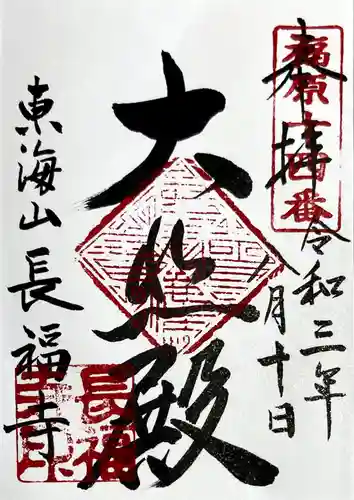 奉拝
令和三年
八月十日
大悲殿
東海山長福寺